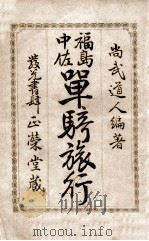 尚武道人編著
福島
中佐
單騎旅行
發兌書肆 正榮堂藏